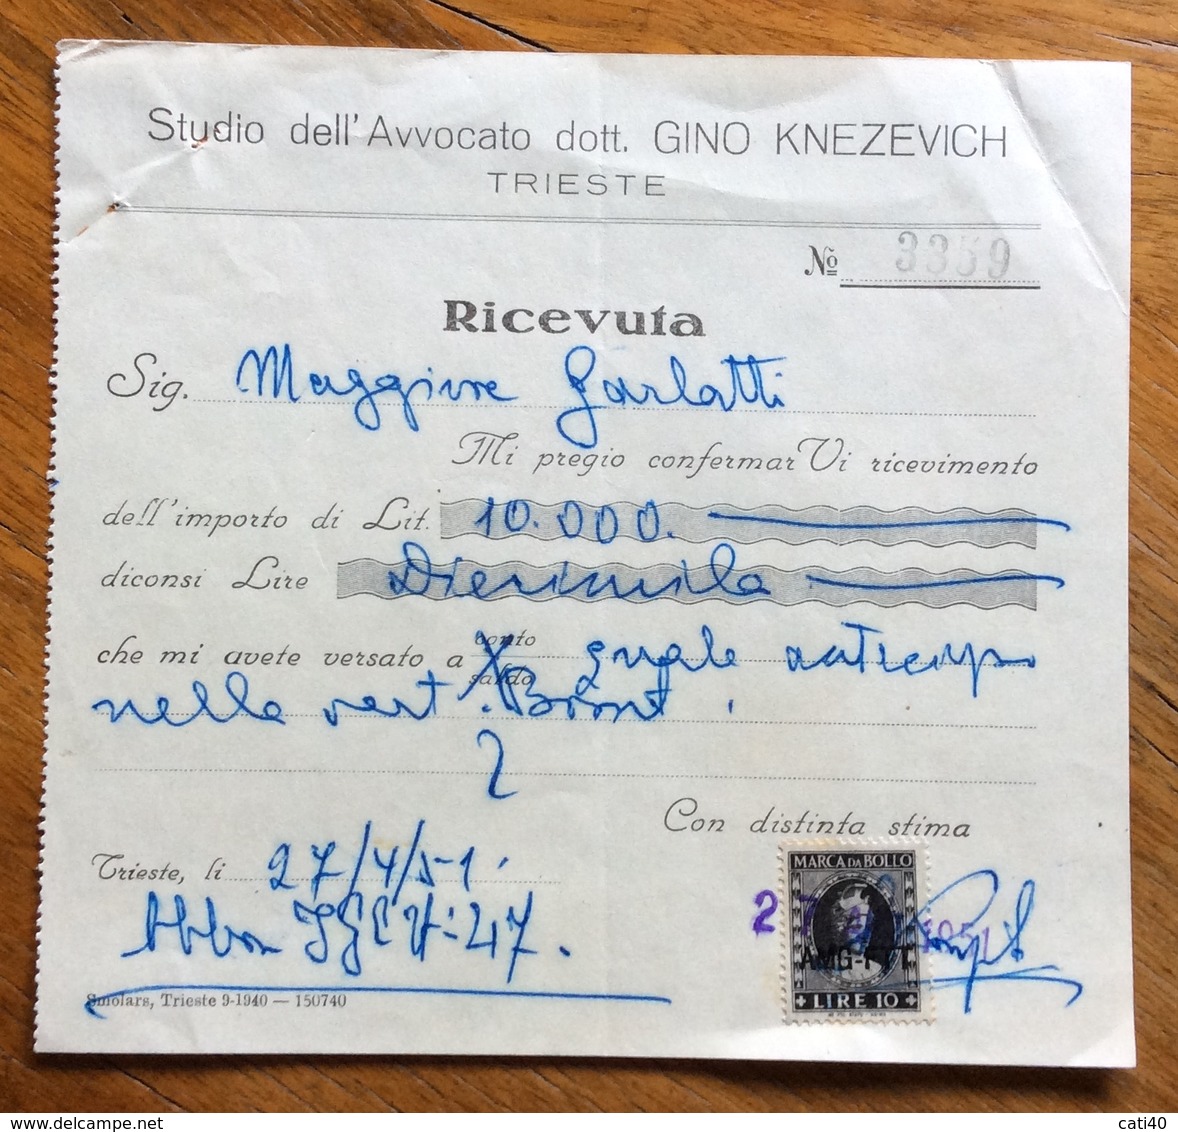 Studio dell'Avvocato dott. GINO KNEZEVICH
TRIESTE
№ 3359
Ricevuta
Sig. Maggiore Garlatti
Mi pregio confermarVi ricevimento
dell'importo di Lit. 10.000.
diconsi Lire Diecimila
che mi avete versato a conto saldo quale anticipo
nella vert.
Con distinta stima
Trieste, li 27/4/51.
Abbon IGE 47.
MARCA DA BOLLO
27 1951
AMG-FTT
LIRE 10
Smolars, Trieste 9-1940 — 150740
cati40